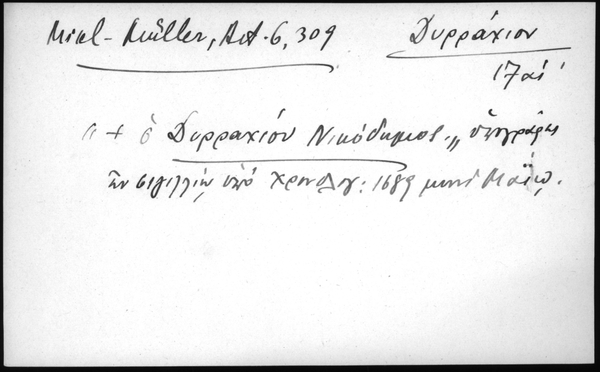 Mikl-Müller, Act. 6, 309
Δυρράχιον
17 αἰ
"+ ὁ Δυρραχίου Νικόδημος„ ὑπογράφει
ἐν σιγιλλίῳ ὑπό χρονολογ: 1689 μηνὶ Μαΐῳ.